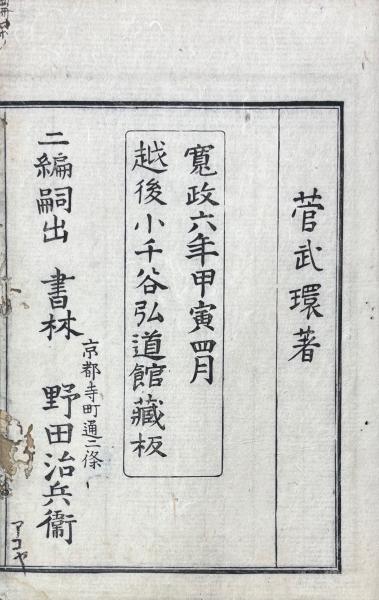 菅武環著
寛政六年甲寅四月
越後小千谷弘道館藏板
二編嗣出 書林
京都寺町通二條
野田治兵衞